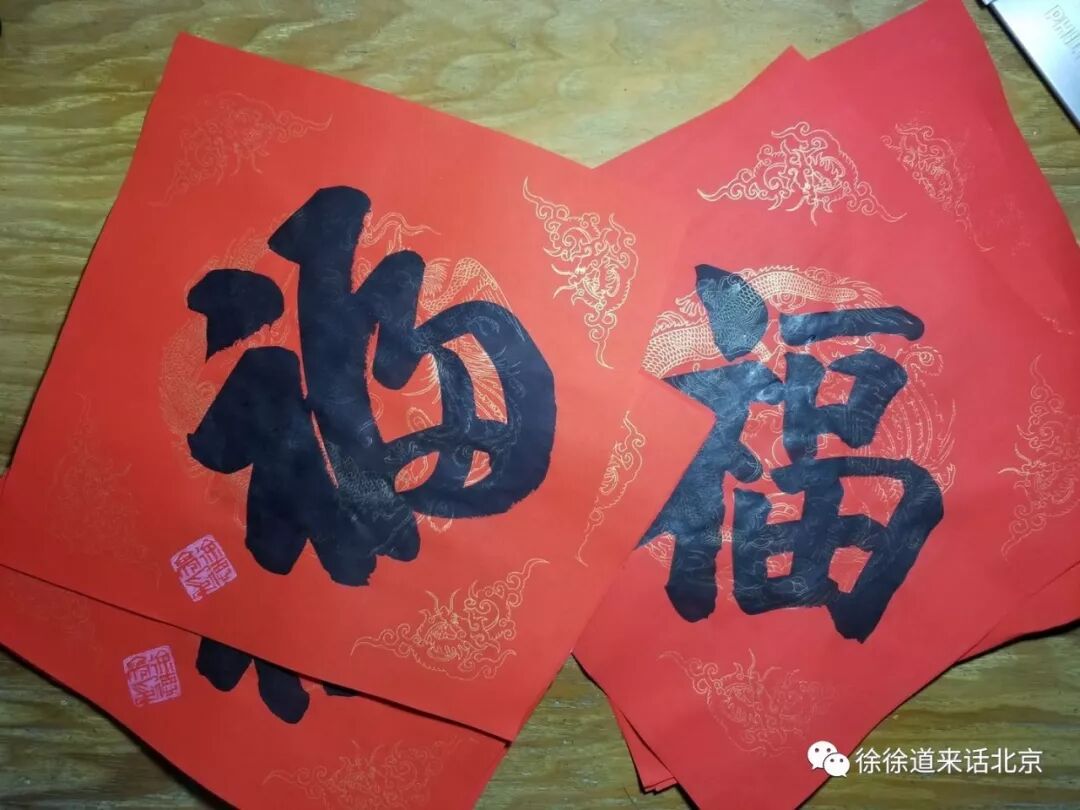 福
福
徐徐道来话北京